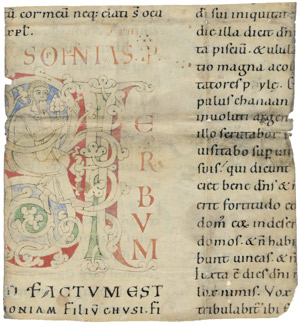 ta cor meū neq; ciati s̄ ocu
xpl̄.
SOPHONIAS. P
ERBVM
FACTVM EST
ONIAM FILIŪ CHUSI. FI
di sui iniquitat
dic illa dicit dn̄s
ta pisciū. & ulula
tio magna a col
tatores pylę. c
pulus chanaan
inuoluti argen
illo scrutabor
uisitabo sup uiros
suis. qui dicunt
ciet bene dn̄s & n̄
erit fortitudo eo
dom eoꝝ in deser
domos. & n̄ habi
bunt uineas. & n̄
Iuxta ē dies dn̄i m
lox nimis. Vox
tribulabit ibi